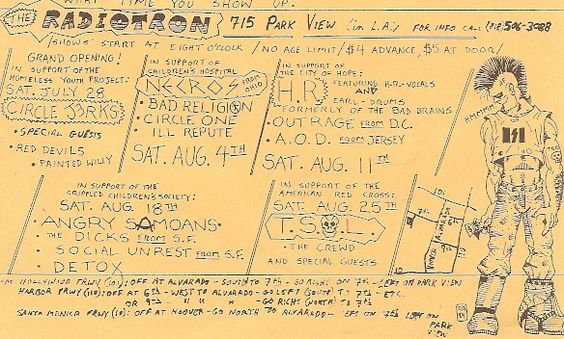 WHAT TIME YOU SHOW UP.
THE RADIOTRON 715 PARK VIEW (in L.A.) FOR INFO CALL (213) 506-3088
/SHOWS START AT EIGHT O'CLOCK / NO AGE LIMIT / $4 ADVANCE, $5 AT DOOR/
GRAND OPENING!
IN SUPPORT OF THE
HOMELESS YOUTH PROJECT:
SAT. JULY 28
CIRCLE JERKS
• SPECIAL GUESTS
• RED DEVILS
• PAINTED WILLY
IN SUPPORT OF
CHILDREN'S HOSPITAL
NECROS FROM OHIO
• BAD RELIGION
• CIRCLE ONE
• ILL REPUTE
SAT. AUG. 4TH
IN SUPPORT OF
THE CITY OF HOPE:
H.R. FEATURING H.R.-VOCALS
AND
EARL-DRUMS
FORMERLY OF THE BAD BRAINS
OUTRAGE FROM D.C.
A.O.D. FROM JERSEY
SAT. AUG. 11TH
IN SUPPORT OF THE
CRIPPLED CHILDREN'S SOCIETY:
SAT. AUG 18TH
• ANGRY SAMOANS •
• THE DICKS FROM S.F.
• SOCIAL UNREST FROM S.F.
• DETOX
IN SUPPORT OF THE
AMERICAN RED CROSS:
SAT. AUG 25TH
T.S.O.L.
• THE CREWD
AND SPECIAL GUESTS
6th
7th
ALVARADO
HOLLYWOOD FRWY (101): OFF AT ALVARADO - SOUTH TO 7th - GO RIGHT ON 7th - LEFT ON PARK VIEW
HARBOR FRWY (110): OFF AT 6th - WEST TO ALVARADO - GO LEFT (SOUTH) TO 7th - ETC.
OR 9th " " " - GO RIGHT (NORTH) TO 7th
SANTA MONICA FRWY (10): OFF AT HOOVER - GO NORTH TO ALVARADO - LEFT ON 7th LEFT ON
PARK
VIEW